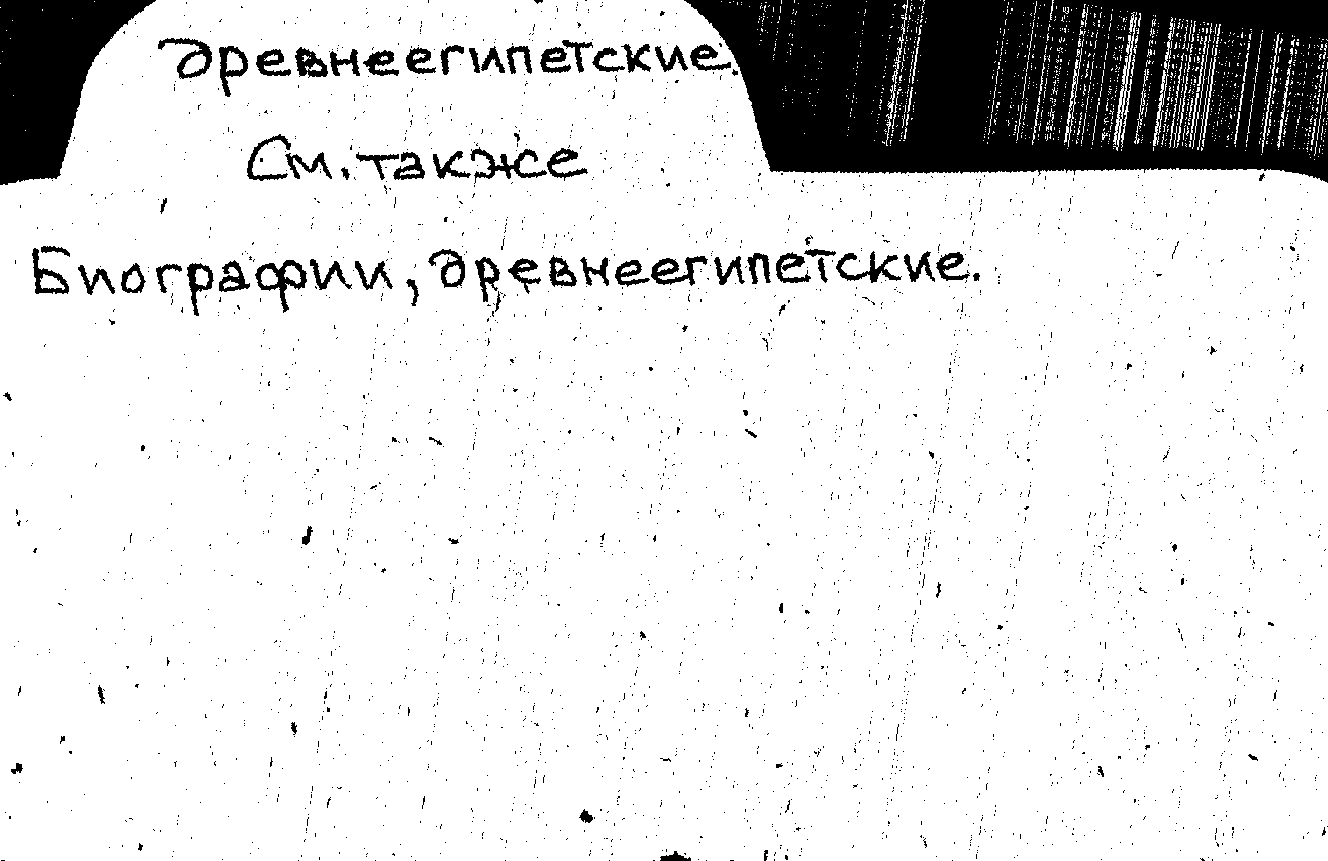 древнеегипетские.
См. также
Биографии, древнеегипетские.